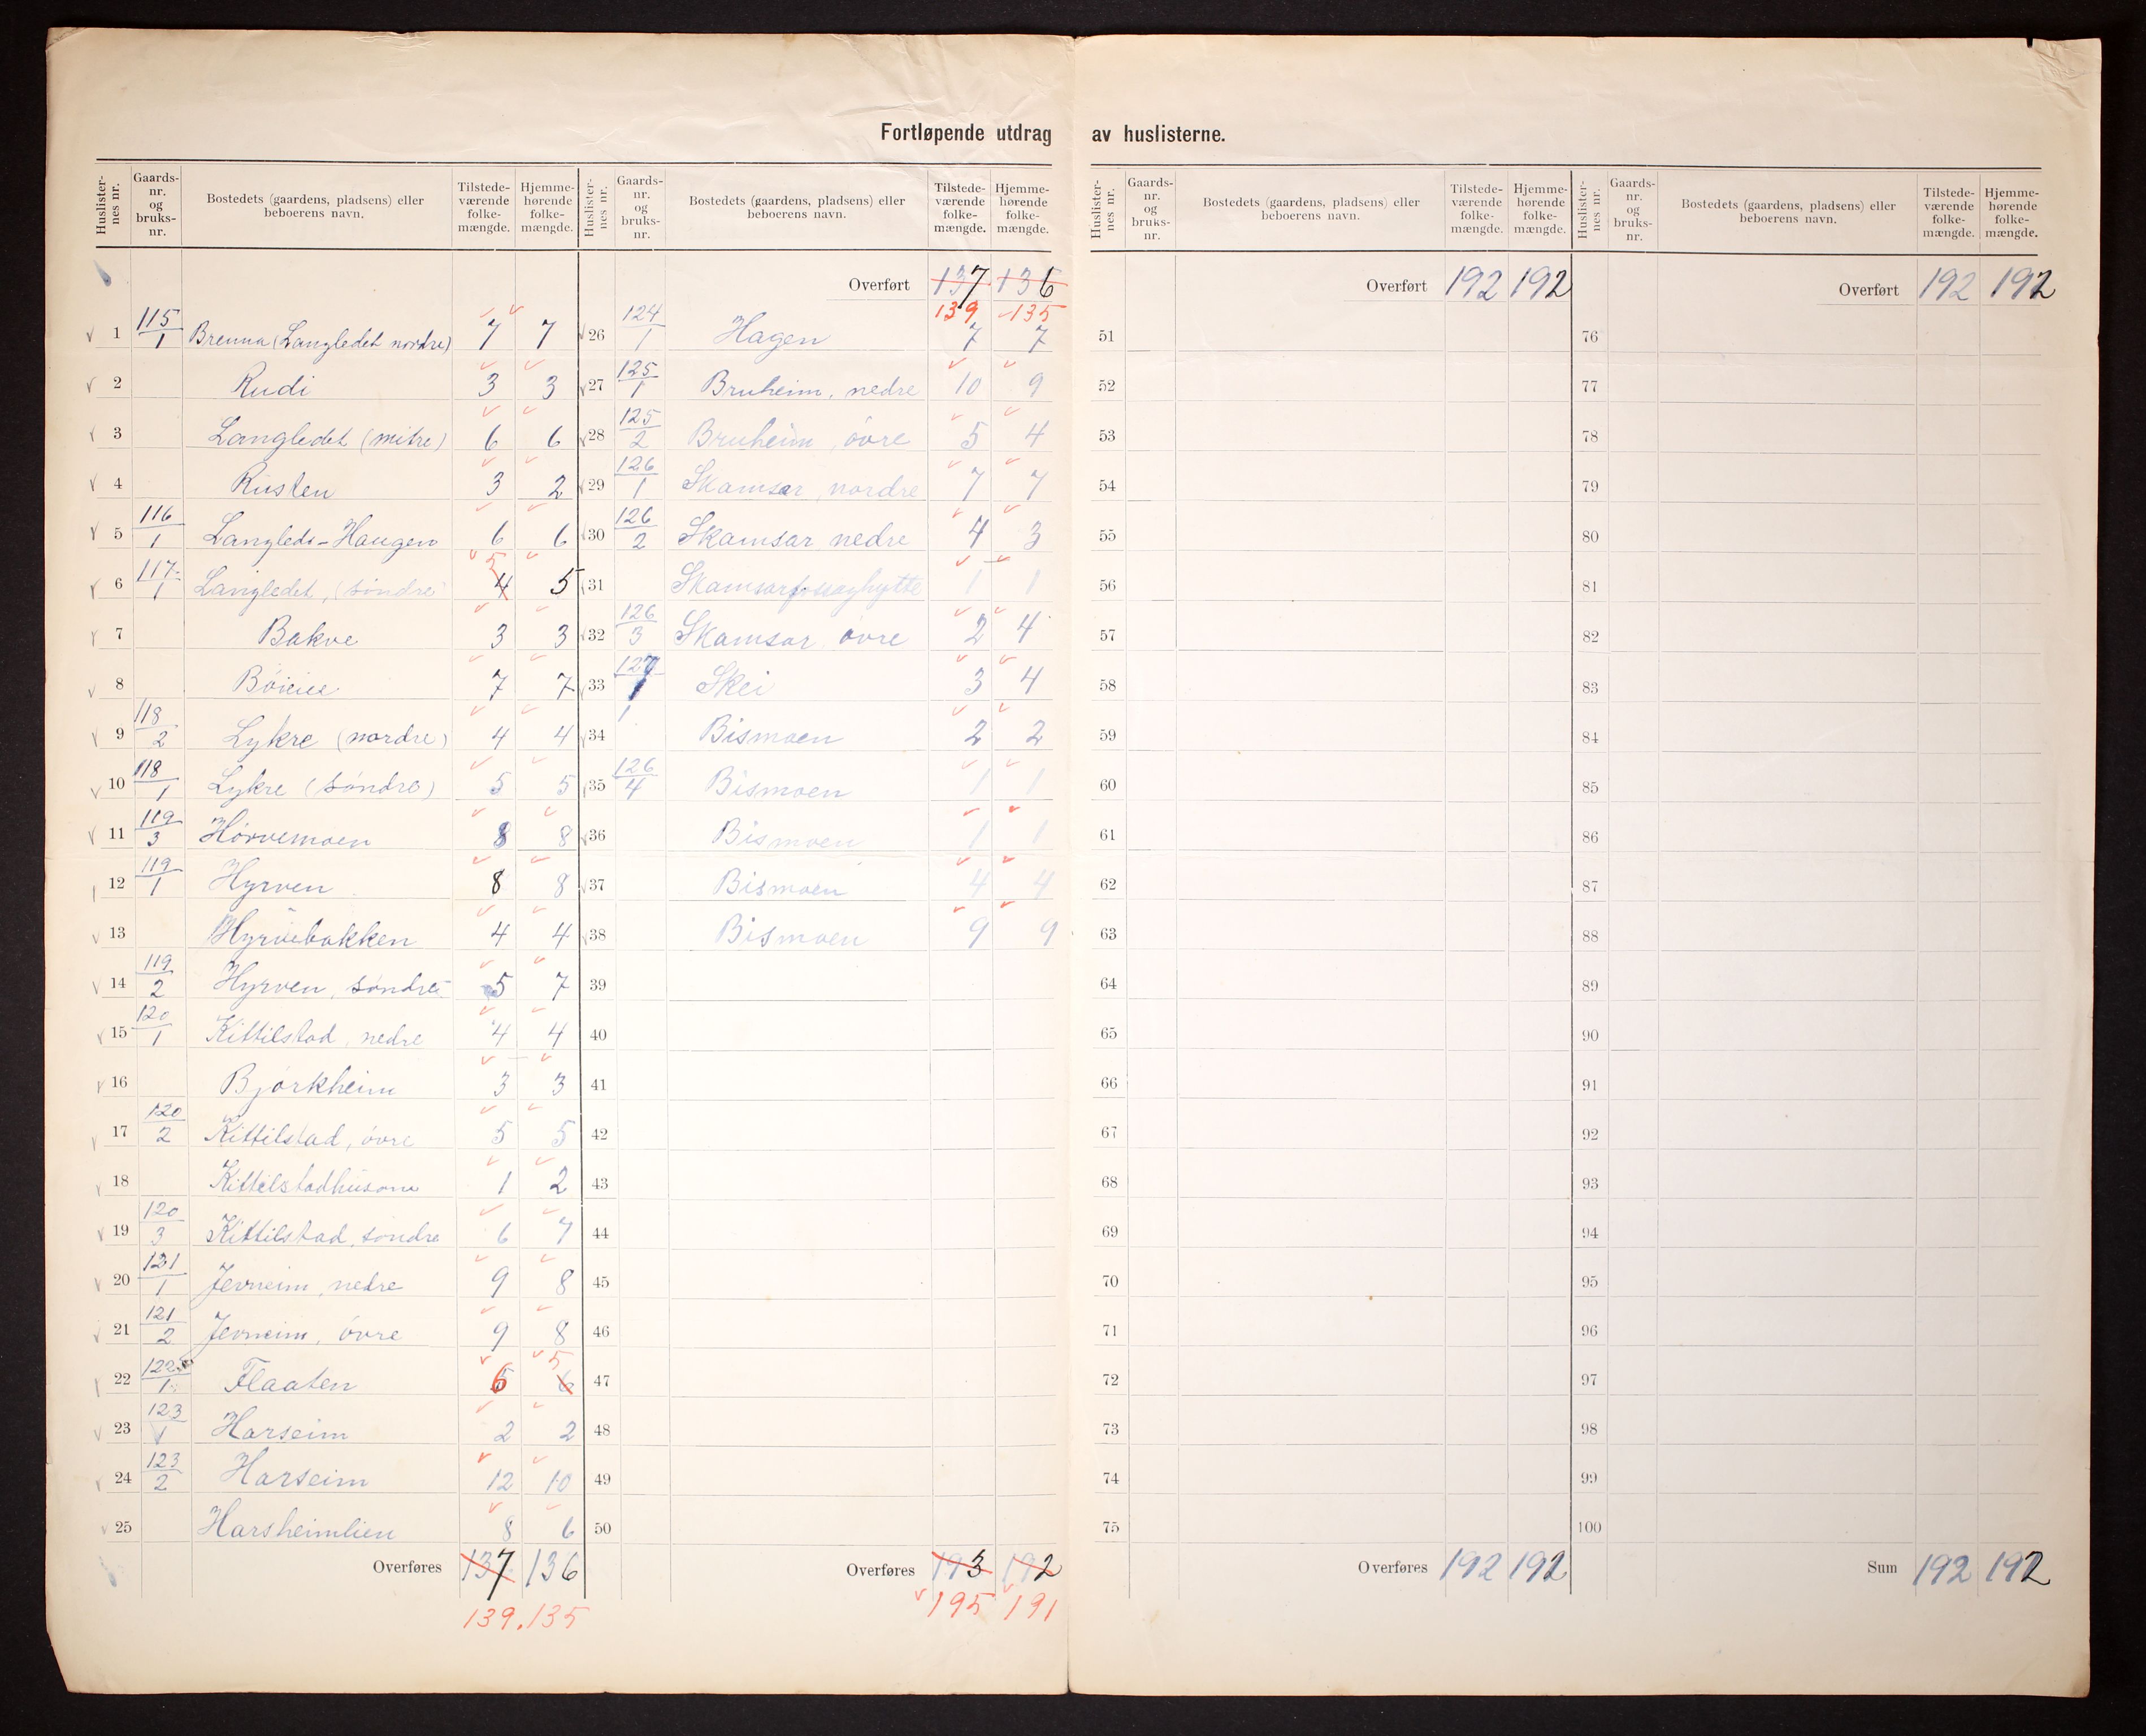 Fortløpende utdrag av huslisterne.
Huslisternes nr. Gaardsnr. og bruksnr. Bostedets (gaardens, pladsens) eller beboerens navn. Tilstedeværende folkemængde. Hjemmehørende folkemængde.
1 115/1 Brenna (Langledet nordre) 7 7
2 Rudi 3 3
3 Langledet (mitre) 6 6
4 Rusten 3 2
5 116/1 Langleds-Haugen 6 6
6 117/1 Langledet, (søndre) 4 5 5
7 Bakve 3 3
8 7 7
9 118/2 Lykre (nordre) 4 4
10 118/1 Lykre (søndre) 5 5
11 119/3 Hørvemoen 8 8
12 119/1 Hyrven 8 8
13 Hyrvebakken 4 4
14 119/2 Hyrven, søndre 5 7
15 120/1 Kittilstad, nedre 4 4
16 Bjørkheim 3 3
17 120/2 Kittilstad, øvre 5 5
18 Kittilstadhusom 1 2
19 120/3 Kittilstad, søndre 6 7
20 121/1 Jevneim, nedre 9 8
21 121/2 Jevneim, øvre 9 8
22 122/1 Flaaten 6 6 5
23 123/1 Harseim 2 2
24 123/2 Harseim 12 10
25 Harsheimlien 8 6
Overføres 137 136
139. 135
Huslisternes nr. Gaardsnr. og bruksnr. Bostedets (gaardens, pladsens) eller beboerens navn. Tilstedeværende folkemængde. Hjemmehørende folkemængde.
Overført 137 136
139 135
26 124/1 Hagen 7 7
27 125/1 Bruheim, nedre 10 9
28 125/2 Bruheim, øvre 5 4
29 126/1 Skamsar, nordre 7 7
30 126/2 Skamsar nedre 4 3
31 1 1
32 126/3 Skamsar øvre 2 4
33 127/1 Skei 3 4
34 Bismoen 2 2
35 126/4 Bismoen 1 1
36 Bismoen 1 1
37 Bismoen 4 4
38 Bismoen 9 9
39
40
41
42
43
44
45
46
47
48
49
50
Overføres 193 192
195 191
Huslisternes nr. Gaardsnr. og bruksnr. Bostedets (gaardens, pladsens) eller beboerens navn. Tilstedeværende folkemængde. Hjemmehørende folkemængde.
Overført 192 192
51
52
53
54
55
56
57
58
59
60
61
62
63
64
65
66
67
68
69
70
71
72
73
74
75
Overføres 192 192
Huslisternes nr. Gaardsnr. og bruksnr. Bostedets (gaardens, pladsens) eller beboerens navn. Tilstedeværende folkemængde. Hjemmehørende folkemængde.
Overført 192 192
76
77
78
79
80
81
82
83
84
85
86
87
88
89
90
91
92
93
94
95
96
97
98
99
100
Sum 192 192